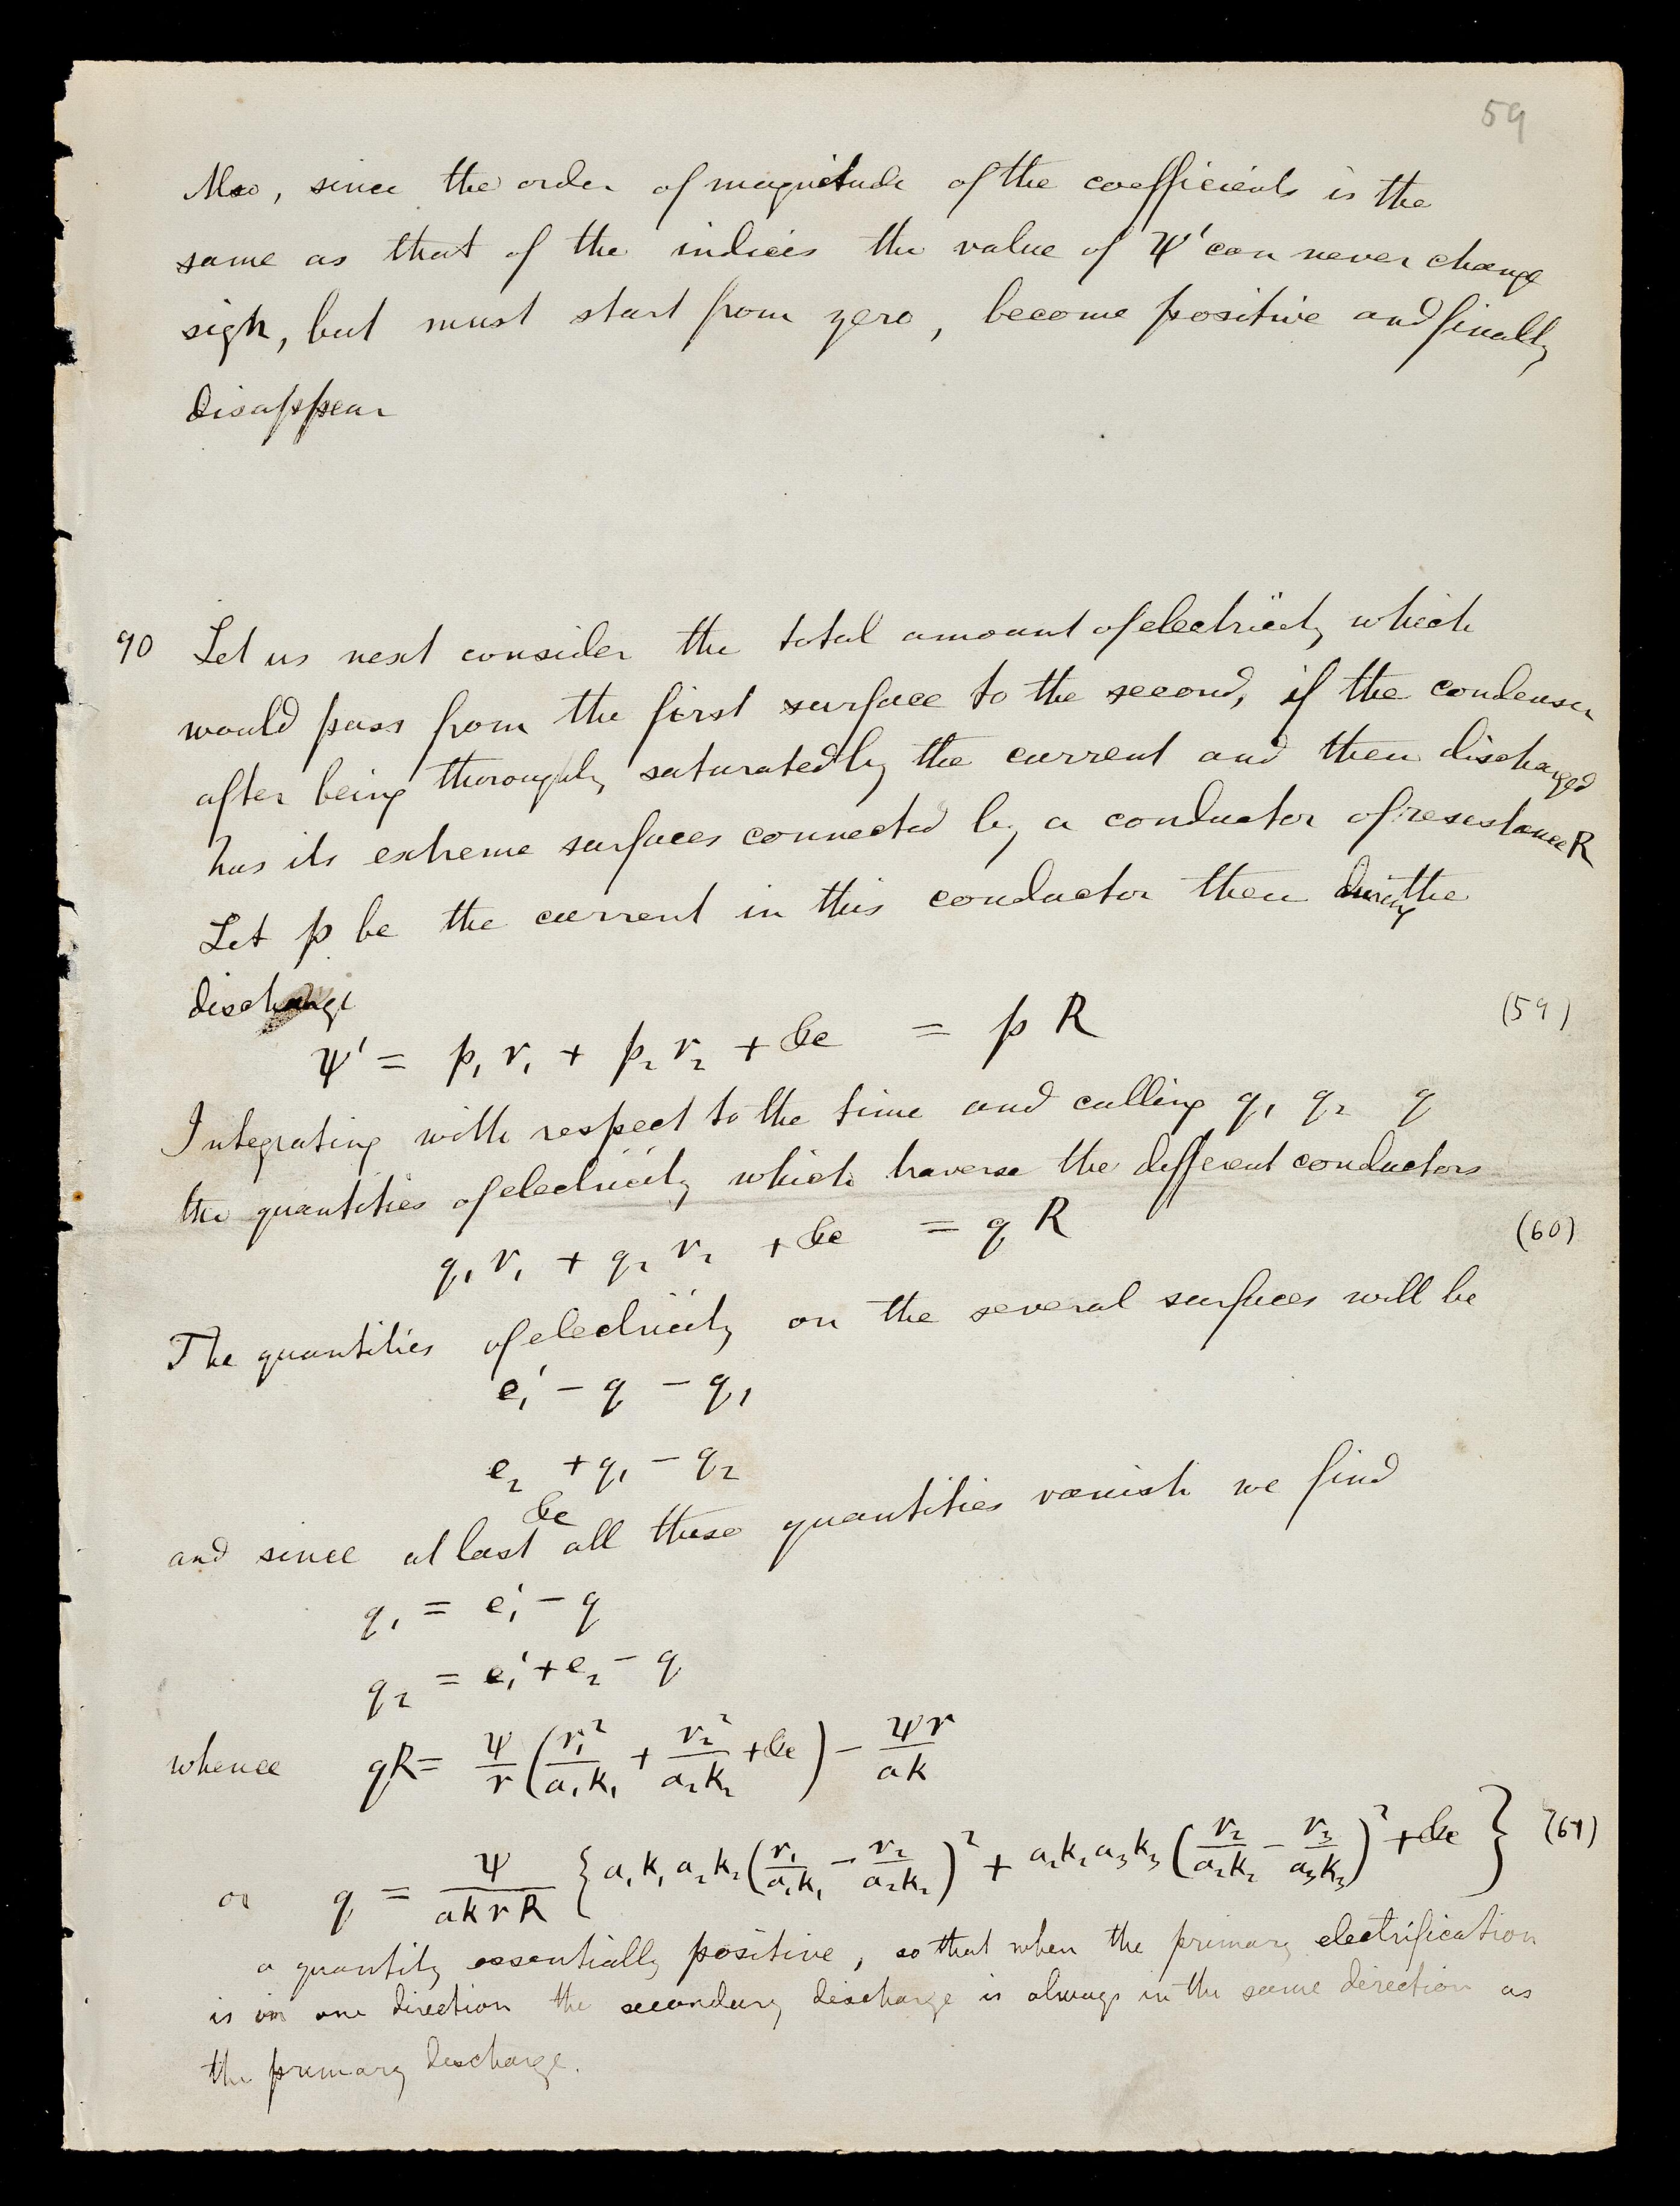 59
Also, since the order of magnitude of the coefficients is the
same as that of the indices the value of Ψ' can never change
sign, but must start from zero, become positive and finally
disappear
90 Let us next consider the total amount of electricity which
would pass from the first surface to the second, if the condenser
after being thoroughly saturated by the current and then discharged
has its extreme surfaces connected by a conductor of resistance R
Let p be the current in this conductor then during the
discharge
Ψ' = p₁ r₁ + p₂ r₂ + &c = p R (59)
Integrating with respect to the time and calling q₁ q₂ q
the quantities of electricity which traverse the different conductors
q₁ r₁ + q₂ r₂ + &c = q R (60)
The quantities of electricity on the several surfaces will be
e₁' − q − q₁
e₂ + q₁ − q₂
&c
and since at last all these quantities vanish we find
q₁ = e₁' − q
q₂ = e₁' + e₂ − q
whence qR = Ψ/r (r₁²/a₁k₁ + r₂²/a₂k₂ + &c) − Ψr/ak
or q = Ψ/akrR {a₁k₁a₂k₂(r₁/a₁k₁ − r₂/a₂k₂)² + a₂k₂a₃k₃(r₂/a₂k₂ − r₃/a₃k₃)² + &c} (61)
a quantity essentially positive, so that when the primary electrification
is in one direction the secondary discharge is always in the same direction as
the primary discharge.